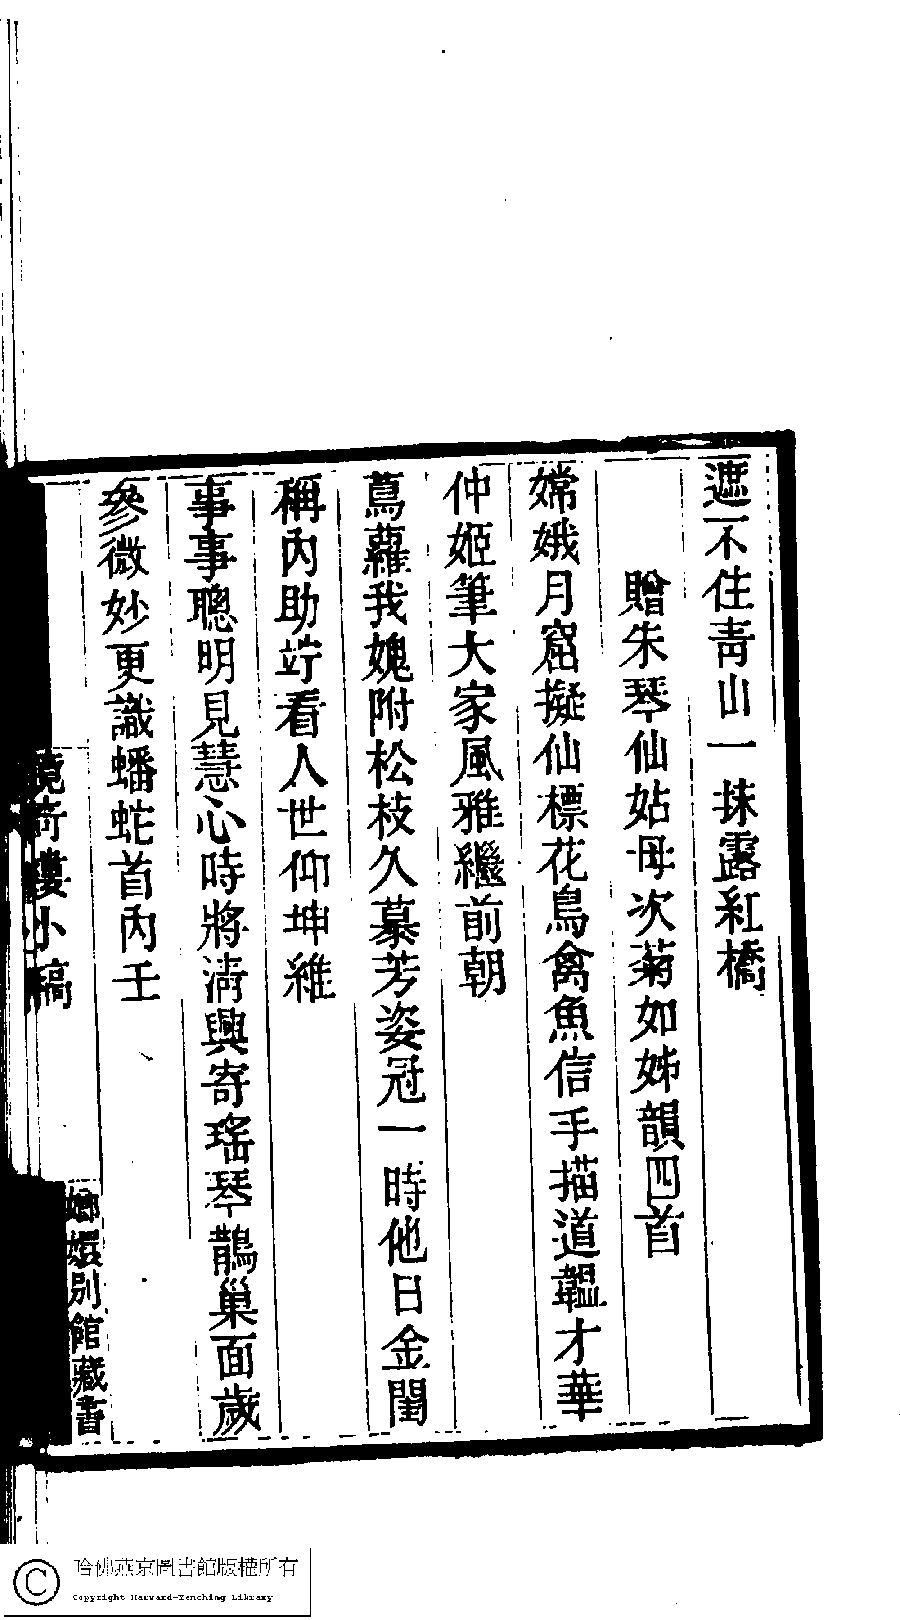 遮不住青山一抹露紅橋
贈朱琴仙姑母次菊如姊韻四首
嫦娥月窟擬仙標花鳥禽魚信手描道韞才華
仲姬筆大家風雅繼前朝
蔦蘿我媿附松枝久慕芳姿冠一時他日金閨
稱內助竚看人世仰坤維
事事聰明見慧心時將清興寄瑤琴鵲巢面歲
參微妙更識蟠蛇首內壬
倚樓小稿
嬛別館藏書
哈佛燕京圖書館版權所有
Copyright Harvard-Yenching Library